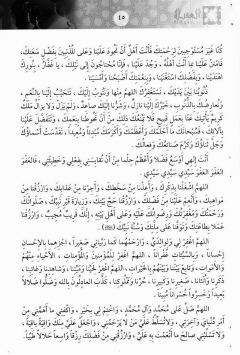 كنّا غير مستوجبين لرحمتك فأنت أهل أن تجود علينا وعلى المذنبين بفضل سعتك،
فامنن علينا بما أنت أهله، وجد علينا، فإنّا محتاجون إلى نيلك، يا غفّار، بنورك
اهتدينا، وبفضلك استغنينا، وبنعمتك أصبحنا وأمسينا.
ذنوبنا بين يديك، نستغفرك اللهمّ منها ونتوب إليك، تتحبّب إلينا بالنّعم،
ونعارضك بالذّنوب، خيرك إلينا نازل، وشرّنا إليك صاعد، ولم يزل ولا يزال ملك
كريم يأتيك عنّا بعمل قبيح فلا يمنعك ذلك من أن تحوطنا بنعمك، وتتفضّل علينا
بآلائك، فسبحانك ما أحلمك وأعظمك وأكرمك مبدئاً ومعيداً، تقدّست أسماؤك
وجلّ ثناؤك وكرم صنائعك وفعالك.
أنت إلهي أوسع فضلاً وأعظم حلماً من أن تقايسني بفعلي وخطيئتي، فالعفو
العفو العفو سيّدي سيّدي سيّدي.
اللهمّ اشغلنا بذكرك، وأعذنا من سخطك، وأجرنا من عذابك، وارزقنا من
مواهبك، وأنعم علينا من فضلك، وارزقنا حجّ بيتك، وزيارة قبر نبيّك، صلواتك
ورحمتك ومغفرتك ورضوانك عليه وعلى أهل بيته، إنّك قريب مجيب، وارزقنا
عملاً بطاعتك وتوفّنا على ملّتك وسنّة نبيّك
اللهمّ اغفر لي ولوالديّ، وارحمهما كما ربّياني صغيراً، اجزهما بالإحسان
إحساناً، وبالسيّئات غفراناً، اللهمّ اغفر للمؤمنين والمؤمنات، الأحياء منهم
والأموات، وتابع بيننا وبينهم بالخيرات، اللهمّ اغفر لحيّنا وميّتنا، وشاهدنا وغائبنا،
ذكرنا وأنثانا، صغيرنا وكبيرنا، حرّنا ومملوكنا، كذب العادلون بالله وضلّوا ضلالاً
بعيداً وخسروا خسراناً مبيناً.
اللهمّ صلّ على محمّد وآل محمّد، واختم لي بخير، واكفني ما أهمّني من
أمر دنياي وآخرتي، ولا تسلّط عليّ من لا يرحمني، واجعل عليّ منك واقية باقية،
ولا تسلبني صالح ما أنعمت به عليّ، وارزقني من فضلك رزقاً واسعاً حلالاً طيّباً.